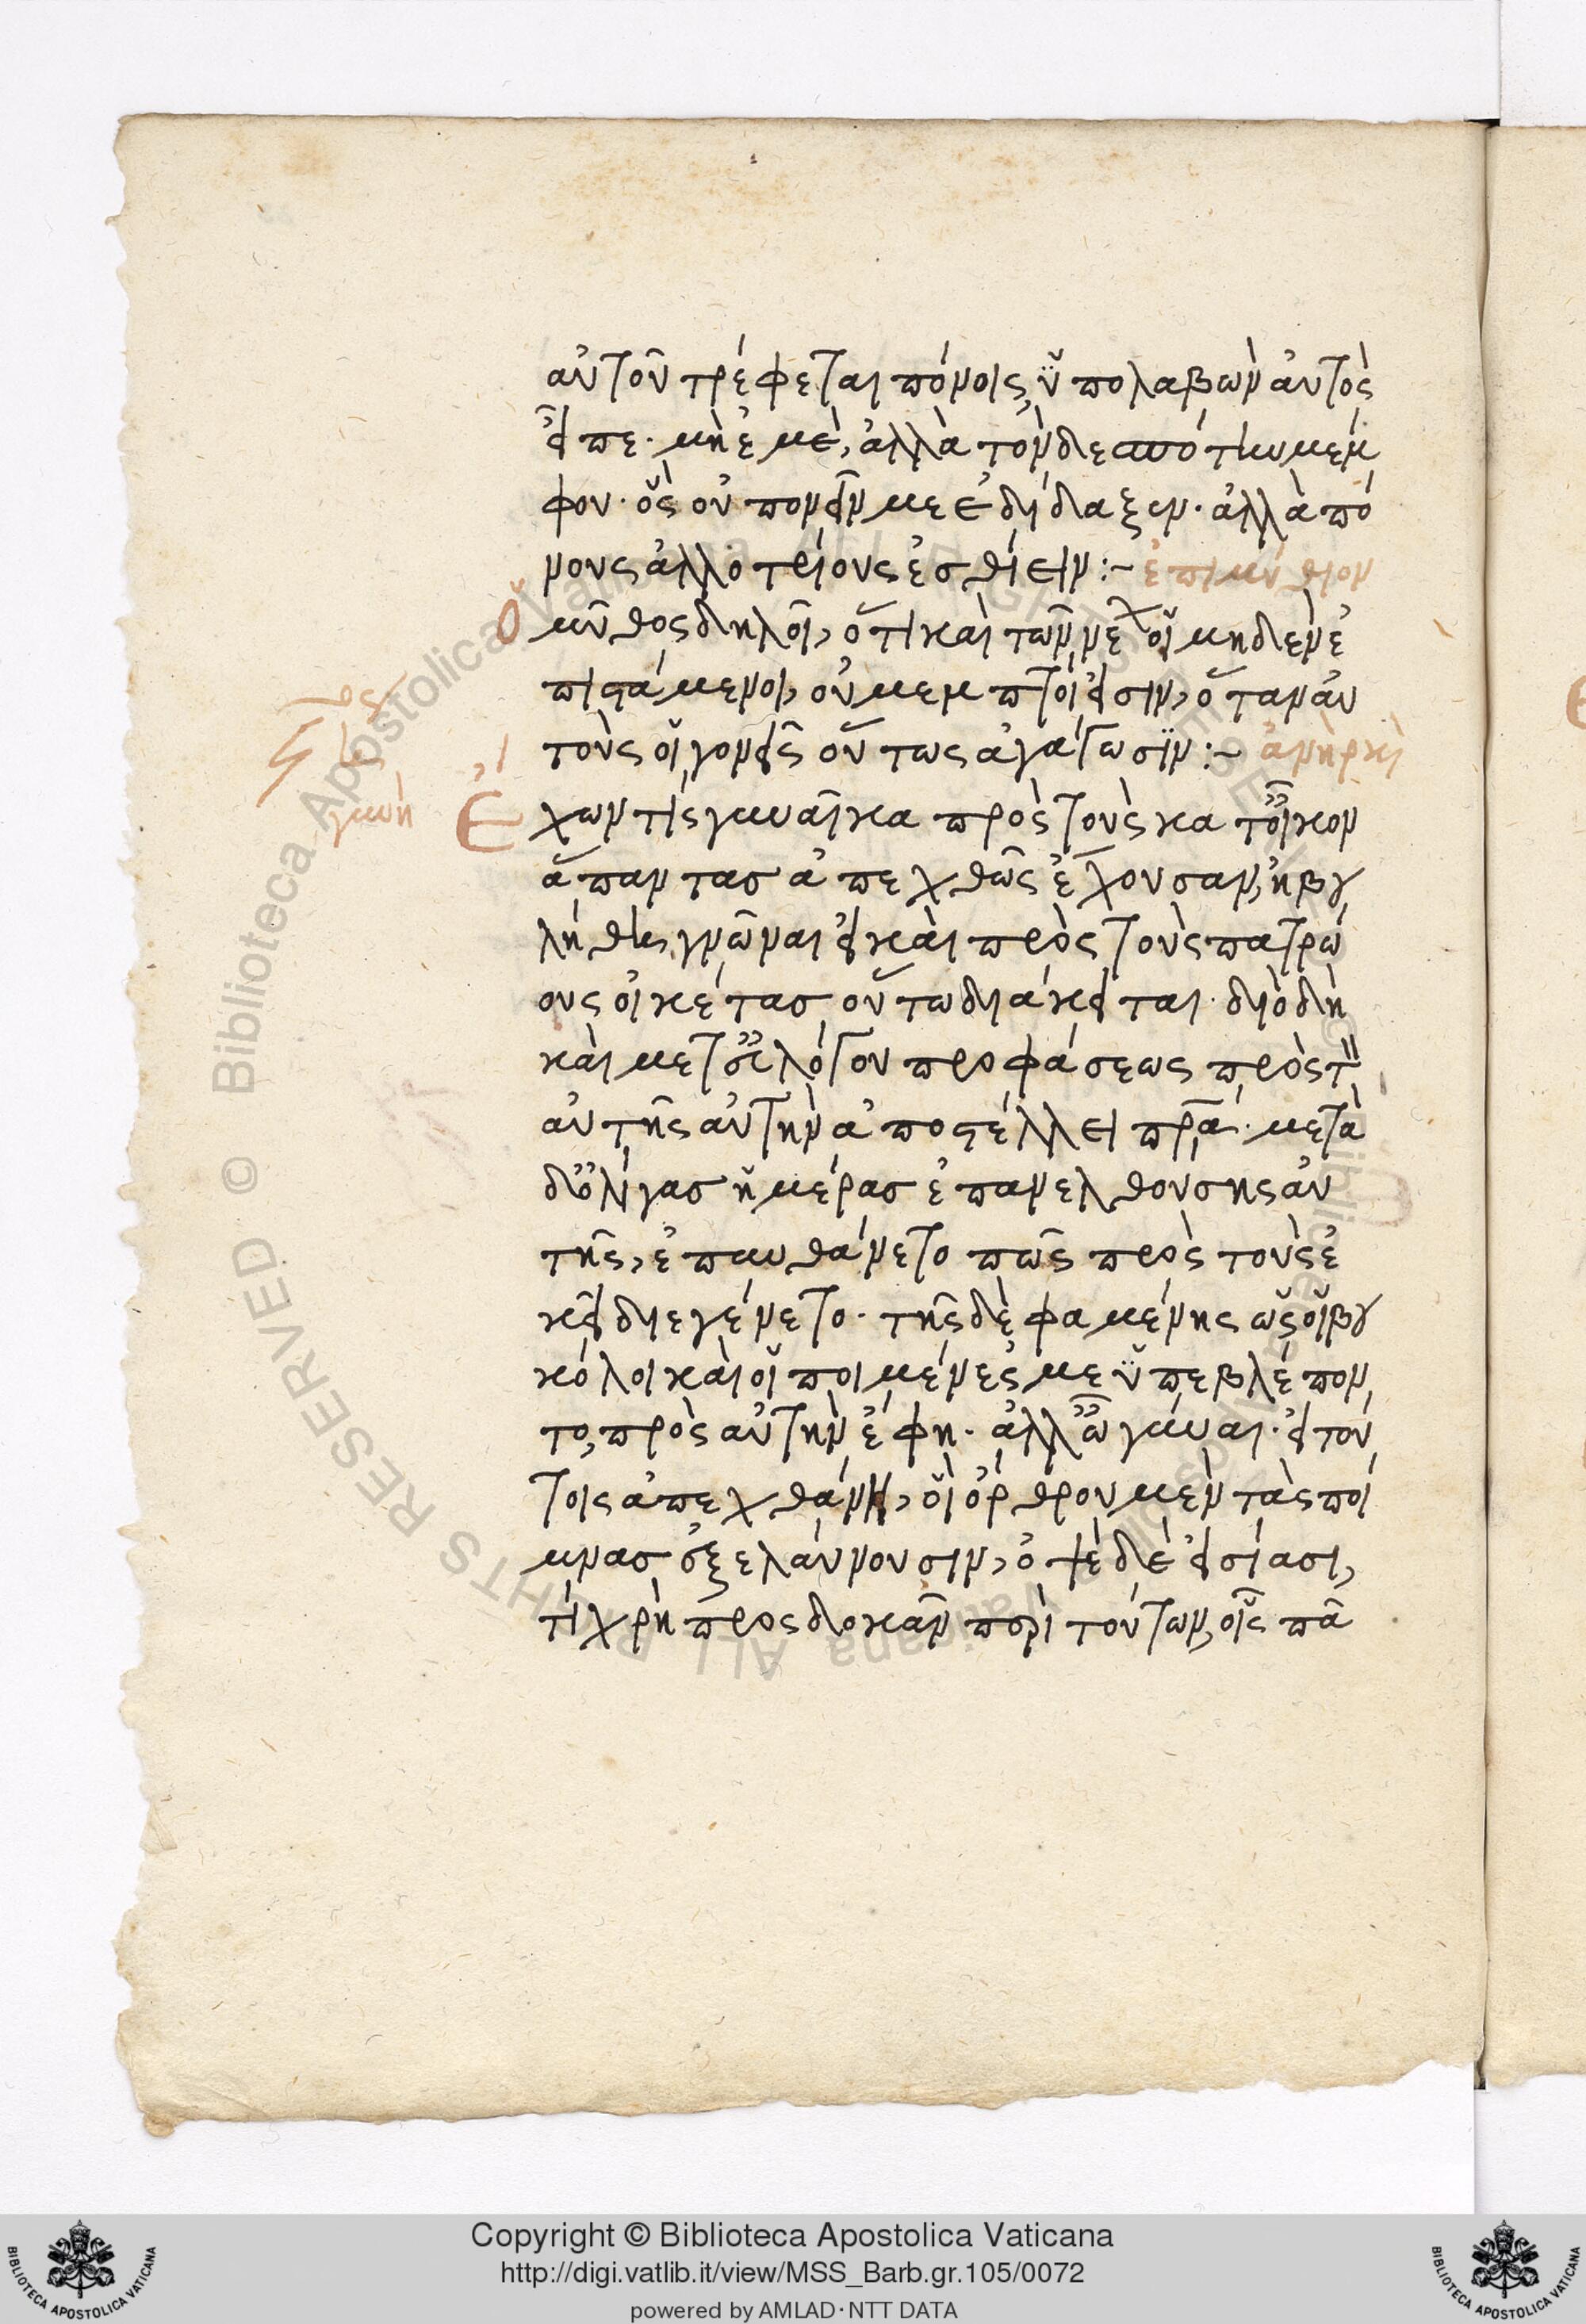 αὐτοῦ τρέφεται πόνοις, ὑπολαβὼν αὐτὸς
εἶπε· μὴ ἐμὲ, ἀλλὰ τὸν δεσπότην μέμ
φου· ὃς οὐ πονεῖν με ἐδίδαξεν· ἀλλὰ πό
νους ἀλλοτρίους ἐσθίειν :~ ἐπιμύθιον
Ὁ μῦθος δηλοῖ, ὅτι καὶ τῶν νέων οἱ μηδὲν ἐ
πιστάμενοι, οὐ μεμπτοί εἰσιν, ὅταν αὐ
τοὺς οἱ γονεῖς οὕτως ἀγάγωσιν :~ ἀνὴρ καὶ
γυνή
Ἔχων τίς γυναῖκα πρὸς τοὺς κατ' οἶκον
ἅπαντας ἀπεχθῶς ἔχουσαν, ἠβου
λήθη γνῶναι εἰ καὶ πρὸς τοὺς πατρώ
ους οἰκέτας οὕτω διάκειται· διὸ δὴ
καὶ μετ' εὐλόγου προφάσεως πρὸς τὸν
αὐτῆς αὐτὴν ἀποστέλλει πρα· μετὰ
δ' ὀλίγας ἡμέρας ἐπανελθούσης αὐ
τῆς, ἐπυνθάνετο πῶς πρὸς τοὺς ἐ
κεῖ διεγένετο· τῆς δὲ φαμένης ὡς οἱ βου
κόλοι καὶ οἱ ποιμένες με ὑπεβλέπον
το, πρὸς αὐτὴν ἔφη· ἀλλ' ὦ γύναι· εἰ τού
τοις ἀπεχθάνῃ, οἳ ὄρθρου μὲν τὰς ποί
μνας ἐξελαύνουσιν, ὀψὲ δὲ εἰσίασι,
τί χρὴ προσδοκᾶν περὶ τούτων, οἷς πᾶ
Copyright © Biblioteca Apostolica Vaticana
http://digi.vatlib.it/view/MSS_Barb.gr.105/0072
powered by AMLAD·NTT DATA